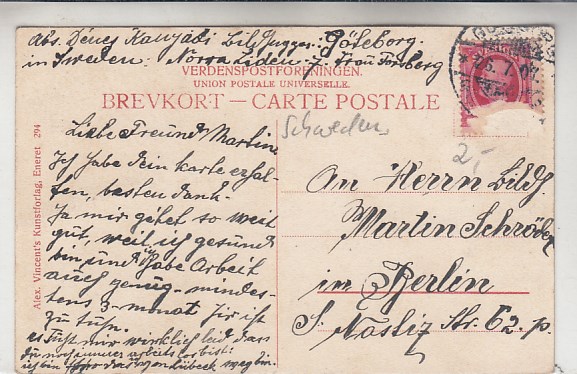 Abs. Dénes Kanyádi Bildhugger: Göteborg.
in Sweden: Norra Liden. 7. Frau Forsberg
VERDENSPOSTFORENINGEN.
UNION POSTALE UNIVERSELLE.
BREVKORT — CARTE POSTALE
Alex. Vincent's Kunstforlag, Eneret 294
Schweden
2,-
Liebe Freund Martin
Ich habe dein karte erhal-
ten, besten dank.
Ja mir gehet so weit
gut, weil ich gesund
bin und ich habe Arbeit
auch genug - mindes-
tens 3-monat für ist
zu tuhn.
es tuht mir wirklich leid dass
du noch immer arbeitslos bist:
ich bin froh das von Lübeck weg bin.
An Herrn Bildh.
Martin Schröder
im Berlin
S. Str. 62. p.